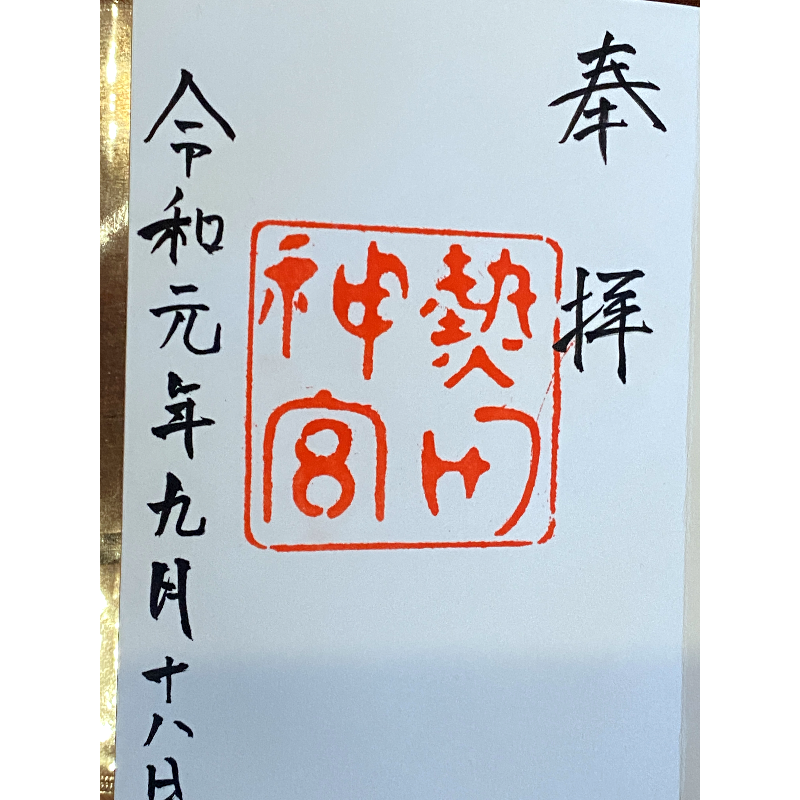 奉拝
熱田
神宮
令和元年九月十八日